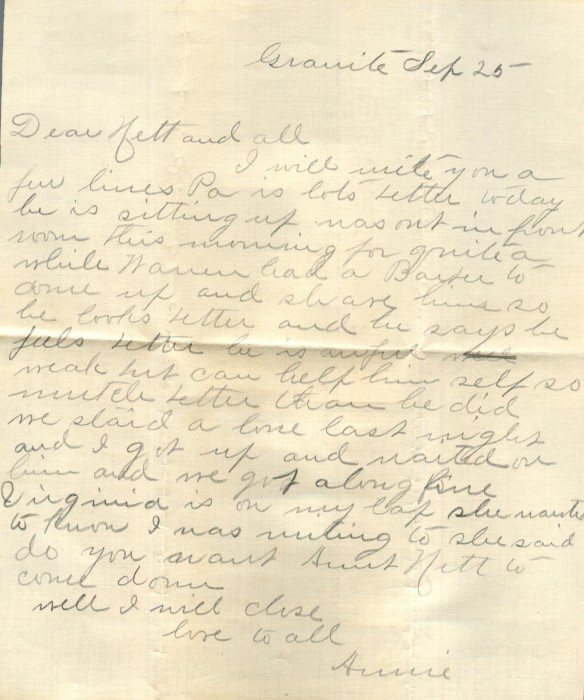 Granite Sep 25
Dear Nett and all
I will write you a
few lines Pa is lots better today
he is sitting up was out in front
room this morning for quite a
while Warren had a Barber to
come up and shave him so
he looks better and he says he
feels better he is awful
weak but can help him self so
mutch better than he did
we staid a lone last night
and I got up and waited on
him and we got along fine
Virginia is on my lap she wanted
to know I was writing to she said
do you want Aunt Nett to
come down
well I will close
love to all
Annie